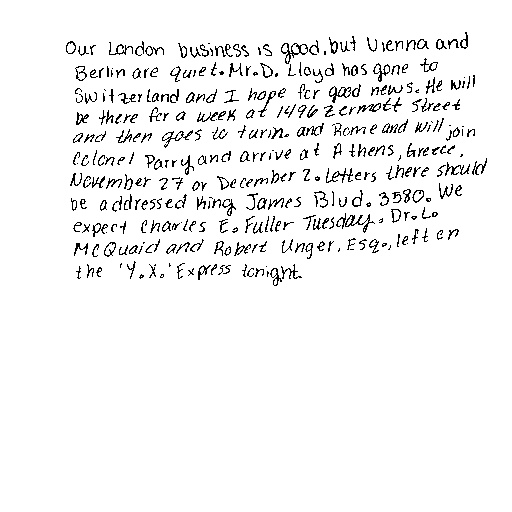 Our London business is good, but Vienna and
Berlin are quiet. Mr. D. Lloyd has gone to
Switzerland and I hope for good news. He will
be there for a week at 1496 Zermott Street
and then goes to Turin. and Rome and will join
Colonel Parry and arrive at Athens, Greece,
November 27 or December 2. Letters there should
be addressed King James Blvd. 3580. We
expect Charles E. Fuller Tuesday. Dr. L.
McQuaid and Robert Unger, Esq., left on
the 'Y.X.' Express tonight.